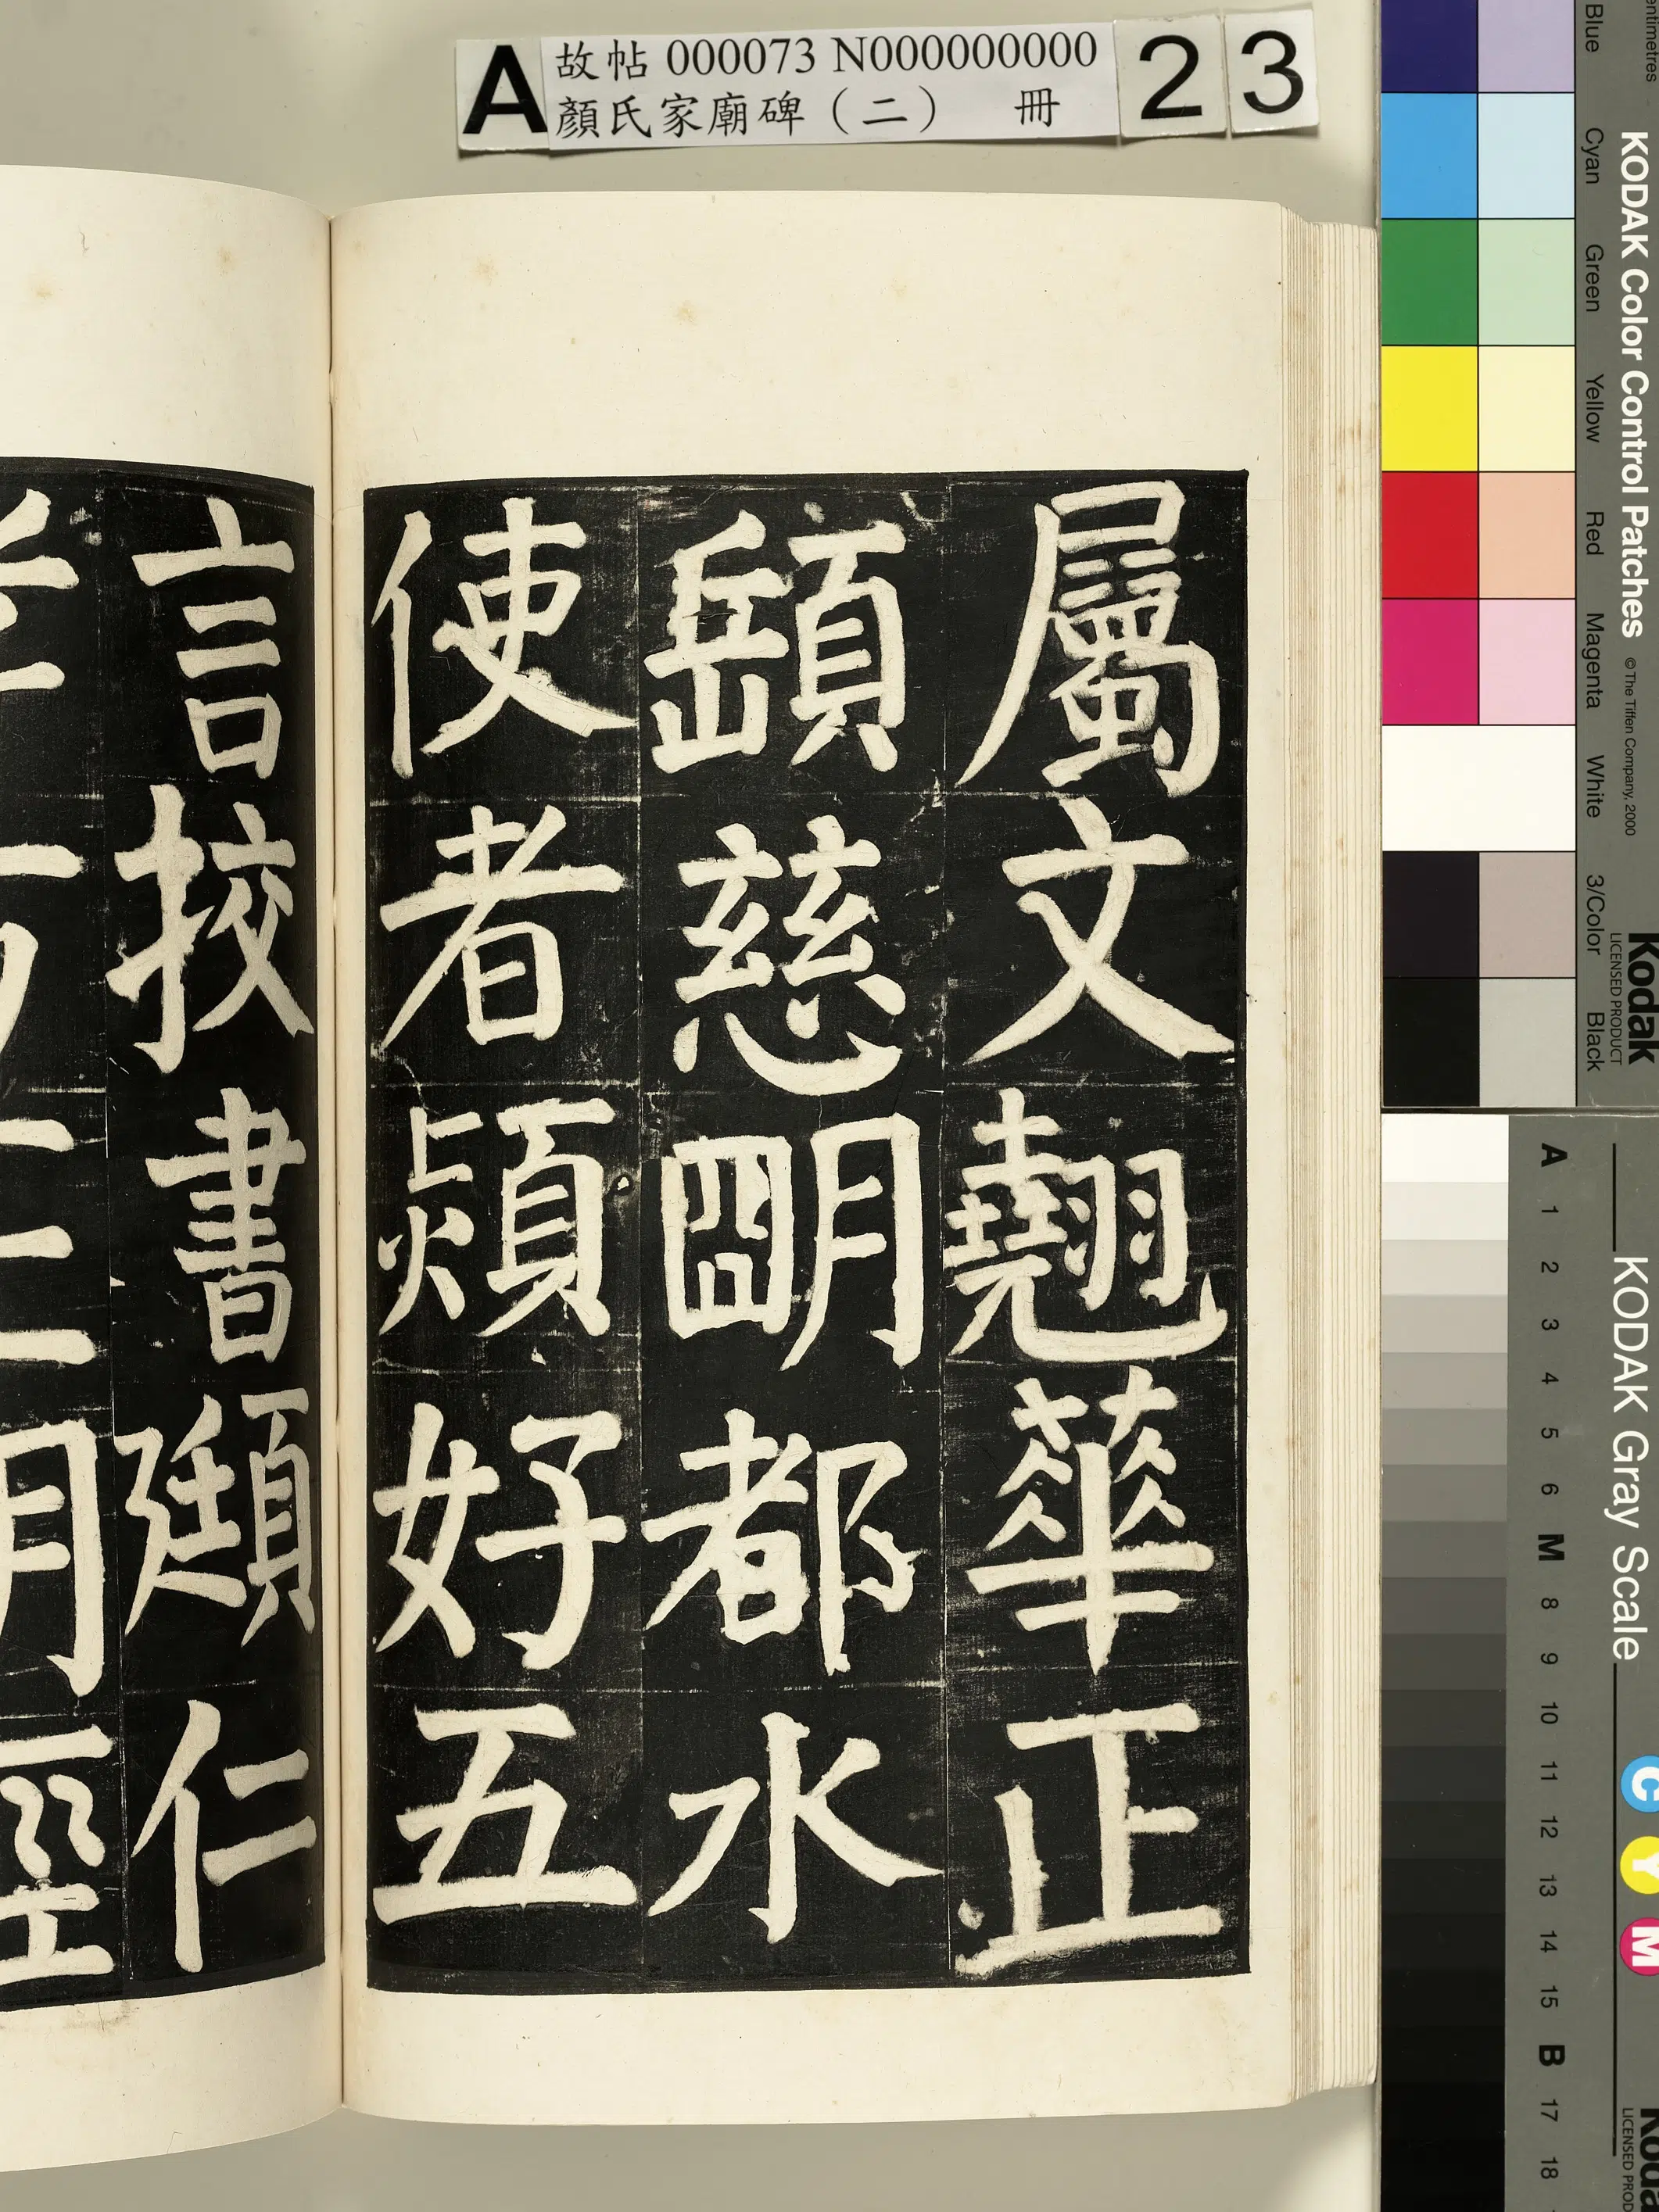 A 故帖 000073 N000000000 2 3
顏氏家廟碑（二） 冊
屬文翹華正
慈朙都水
使者熲好五
言挍書頲仁
孝方正明經
KODAK Color Control Patches © The Tiffen Company, 2000 Kodak
LICENSED PRODUCT
Blue Cyan Green Yellow Red Magenta White 3/Color Black
KODAK Gray Scale C Y M Koda
LICENSED PROD
A 1 2 3 4 5 6 M 8 9 10 11 12 13 14 15 B 17 18